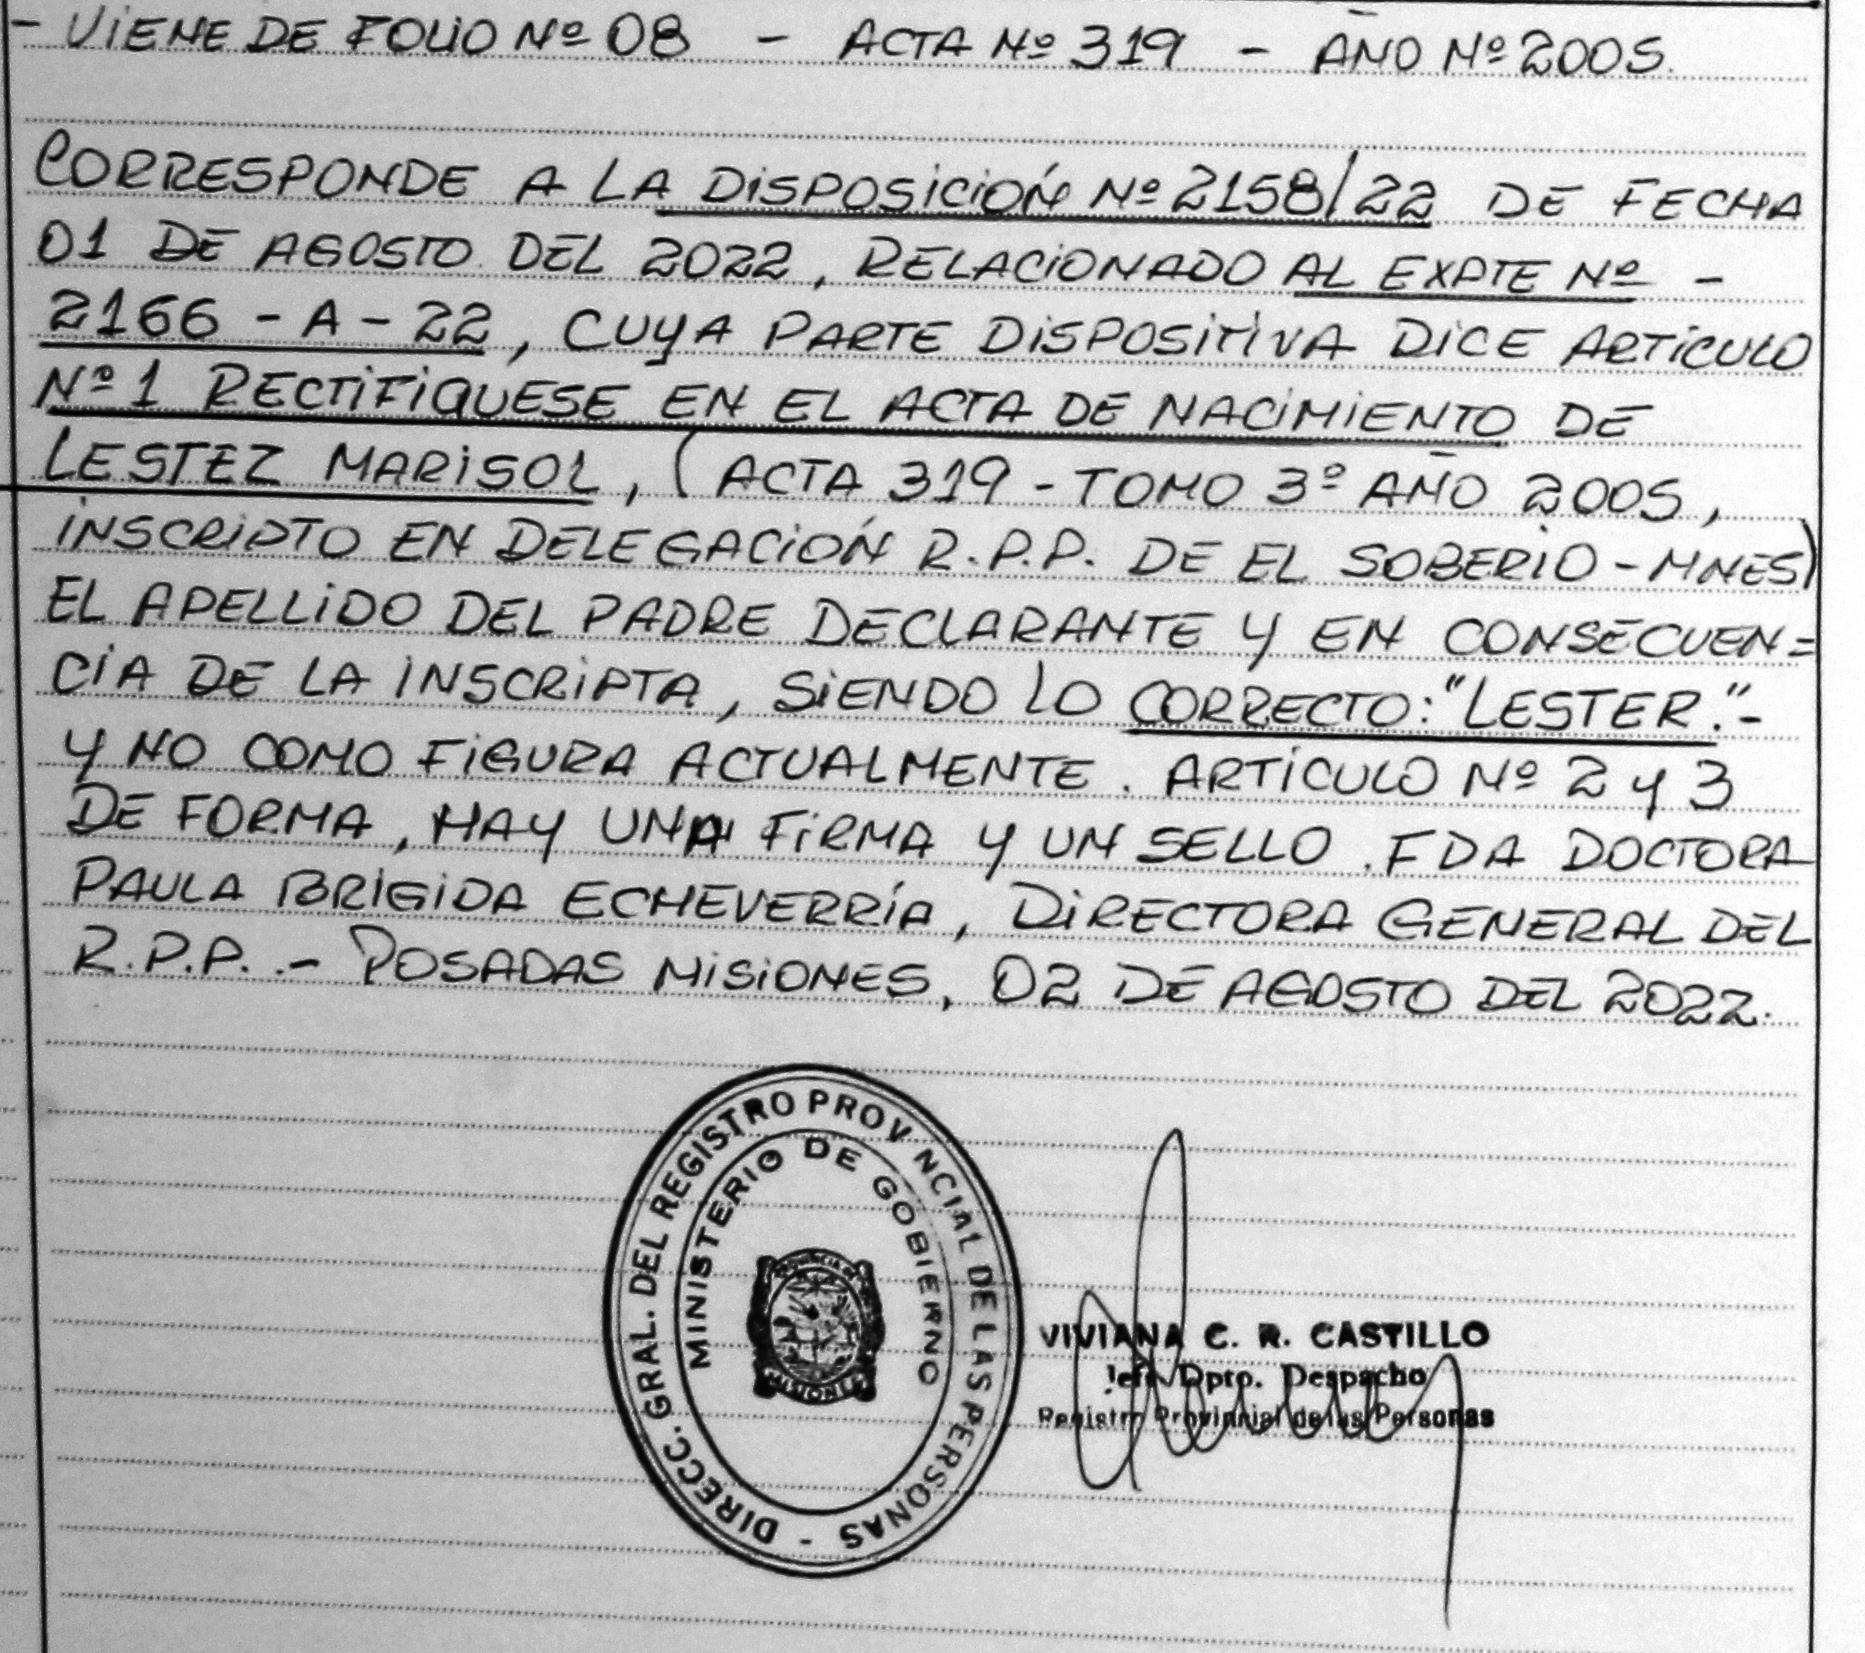 - VIENE DE FOLIO Nº 08 - ACTA Nº 319 - AÑO Nº 2005.
CORRESPONDE A LA DISPOSICIÓN Nº 2158/22 DE FECHA
01 DE AGOSTO DEL 2022, RELACIONADO AL EXPTE Nº -
2166 - A - 22, CUYA PARTE DISPOSITIVA DICE ARTICULO
Nº 1 RECTIFIQUESE EN EL ACTA DE NACIMIENTO DE
LESTEZ MARISOL, (ACTA 319 - TOMO 3º AÑO 2005,
INSCRIPTO EN DELEGACIÓN R.P.P. DE EL SOBERIO - MNES)
EL APELLIDO DEL PADRE DECLARANTE Y EN CONSECUEN=
CIA DE LA INSCRIPTA, SIENDO LO CORRECTO: "LESTER." -
Y NO COMO FIGURA ACTUALMENTE. ARTÍCULO Nº 2 y 3
DE FORMA, HAY UNA FIRMA Y UN SELLO. FDA DOCTORA
PAULA BRIGIDA ECHEVERRÍA, DIRECTORA GENERAL DEL
R.P.P. .- POSADAS MISIONES, 02 DE AGOSTO DEL 2022.
DIRECC. GRAL. DEL REGISTRO PROV NCIAL DE LAS PERSONAS -
MINISTERIO DE GOBIERNO
MISIONES
VIVIANA C. R. CASTILLO
Jefe Dpto. Despacho
Registro Provincial de las Personas